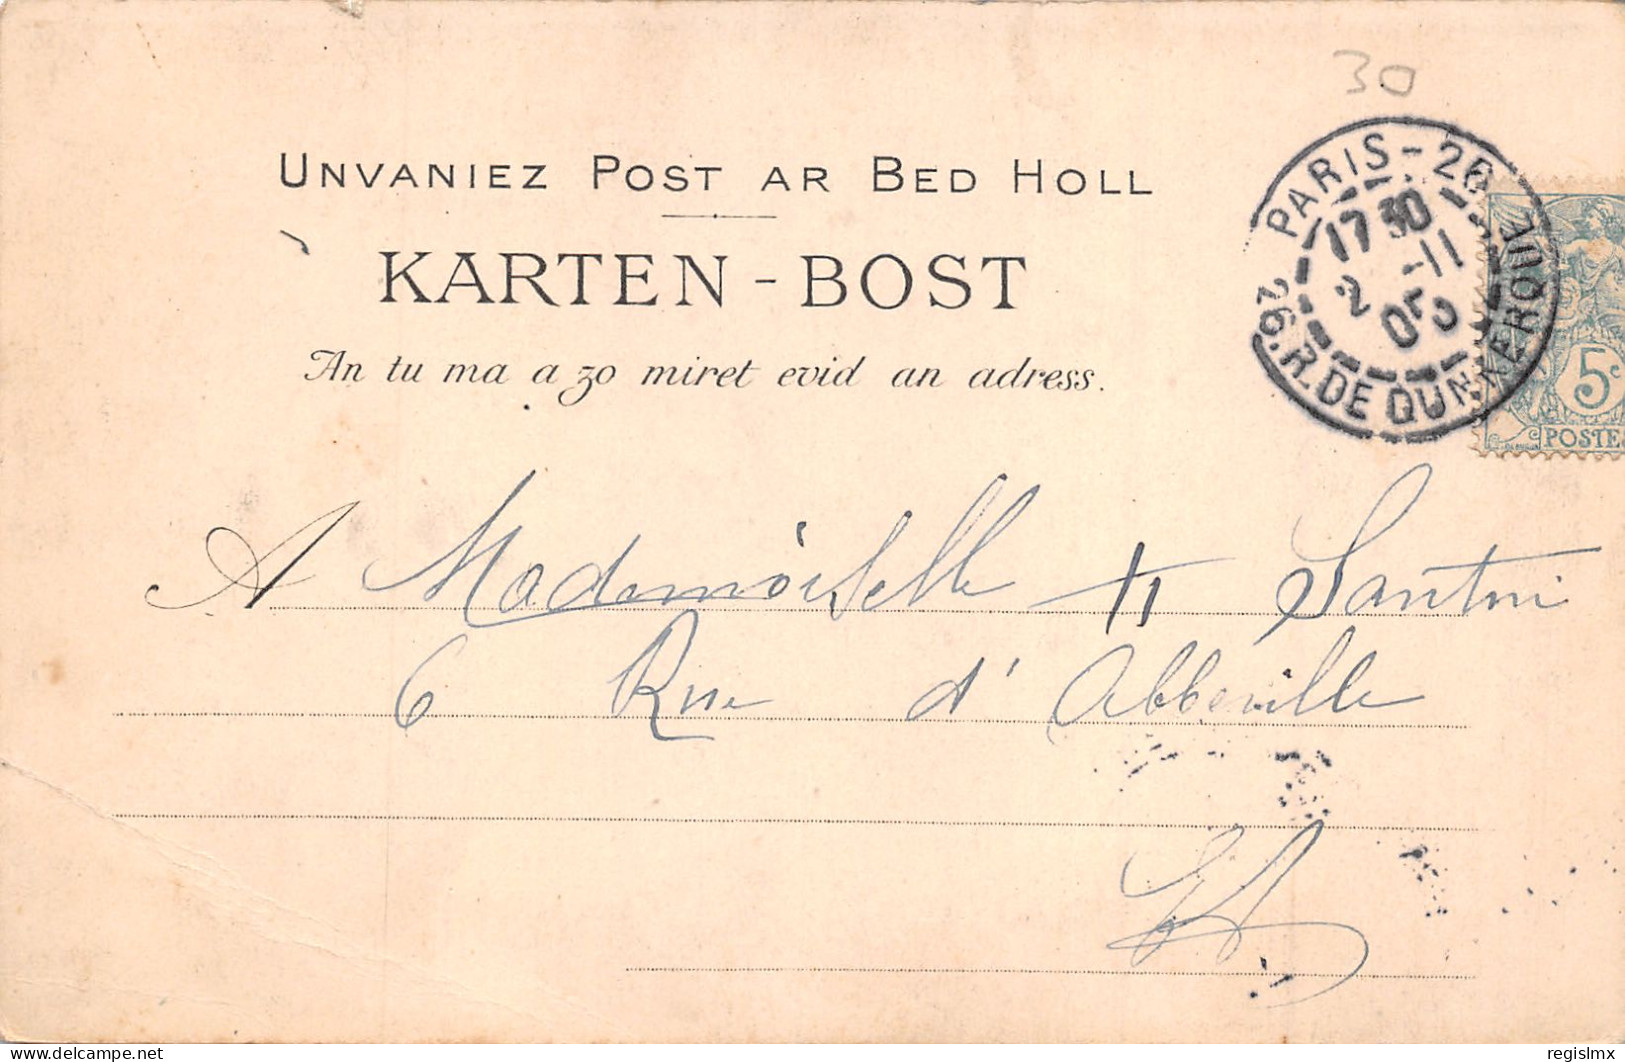 30
UNVANIEZ POST AR BED HOLL
KARTEN-BOST
An tu ma a zo miret evid an adress.
PARIS-26
1730
2 -11
05
26.R.DE DUNKERQUE
5c
POSTES
A Mademoiselle H Santoni
6 Rue d'Abbeville
delcampe.net
regislmx